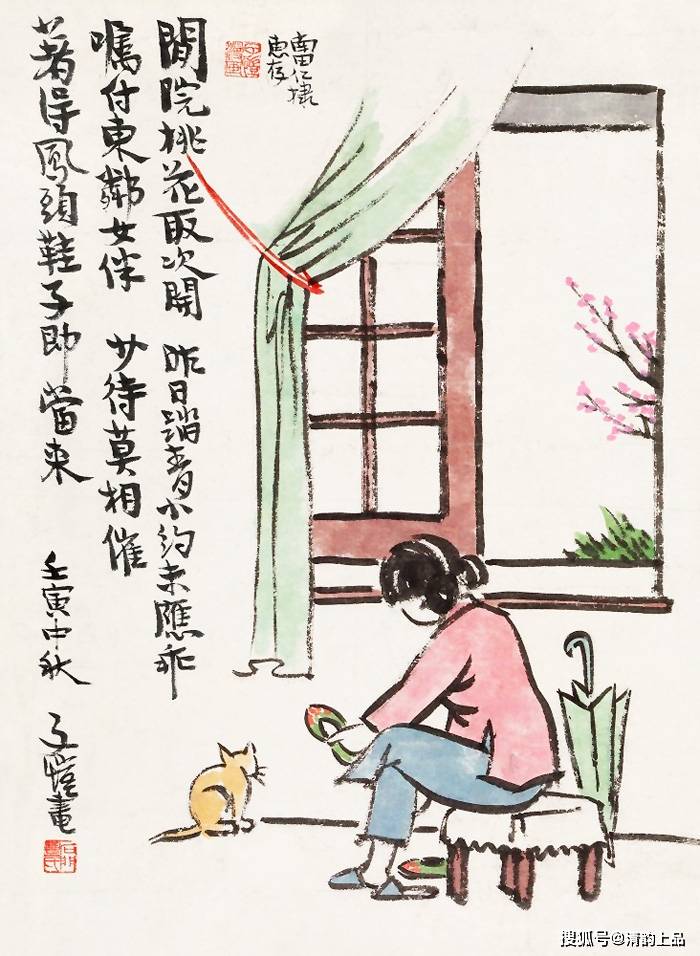 仁棣
惠存
閒院桃花取次開 昨日踏青小約未應乖
囑付東鄰女伴 少待莫相催
著得鳳頭鞋子即當來 壬寅中秋 子愷畫
搜狐号@清韵上品